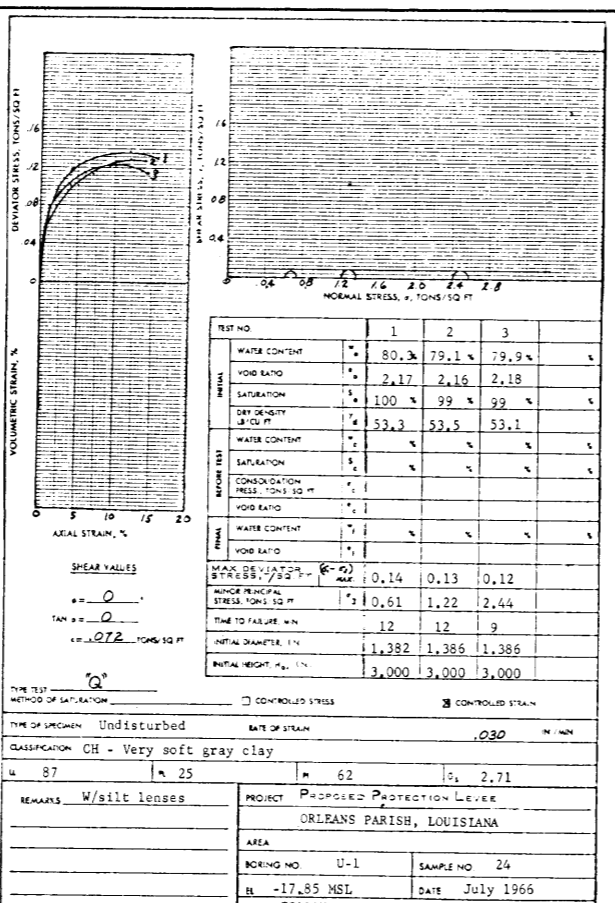 DEVIATOR STRESS, TONS/SQ FT
.16
.12
.08
.04
0
VOLUMETRIC STRAIN, %
0 5 10 15 20
AXIAL STRAIN, %
SHEAR STRESS, τ, TONS/SQ FT
1.6
1.2
0.8
0.4
0 .04 0.8 1.2 1.6 2.0 2.4 2.8
NORMAL STRESS, σ, TONS/SQ FT
TEST NO. 1 2 3
INITIAL
WATER CONTENT 80.3% 79.1% 79.9% %
VOID RATIO 2.17 2.16 2.18
SATURATION 100 % 99 % 99 % %
DRY DENSITY LB/CU FT 53.3 53.5 53.1
BEFORE TEST
WATER CONTENT % % % %
SATURATION % % % %
CONSOLIDATION PRESS., TONS/SQ FT
VOID RATIO
FINAL
WATER CONTENT % % % %
VOID RATIO
MAX DEVIATOR STRESS, T/SQ. FT MAX. 0.14 0.13 0.12
MINOR PRINCIPAL STRESS, TONS/SQ FT σ3 0.61 1.22 2.44
TIME TO FAILURE, MIN 12 12 9
INITIAL DIAMETER, IN. 1.382 1.386 1.386
INITIAL HEIGHT, H₀, IN. 3.000 3.000 3.000
SHEAR VALUES
ø = 0 °
TAN ø = 0
c = .072 TONS/SQ FT
TYPE TEST "Q"
METHOD OF SATURATION
CONTROLLED STRESS
CONTROLLED STRAIN
TYPE OF SPECIMEN Undisturbed RATE OF STRAIN .030 IN/MIN
CLASSIFICATION CH - Very soft gray clay
LL 87 PL 25 PI 62 Gs 2.71
REMARKS W/silt lenses
PROJECT PROPOSED PROTECTION LEVEE
ORLEANS PARISH, LOUISIANA
AREA
BORING NO. U-1 SAMPLE NO. 24
EL -17.85 MSL DATE July 1966